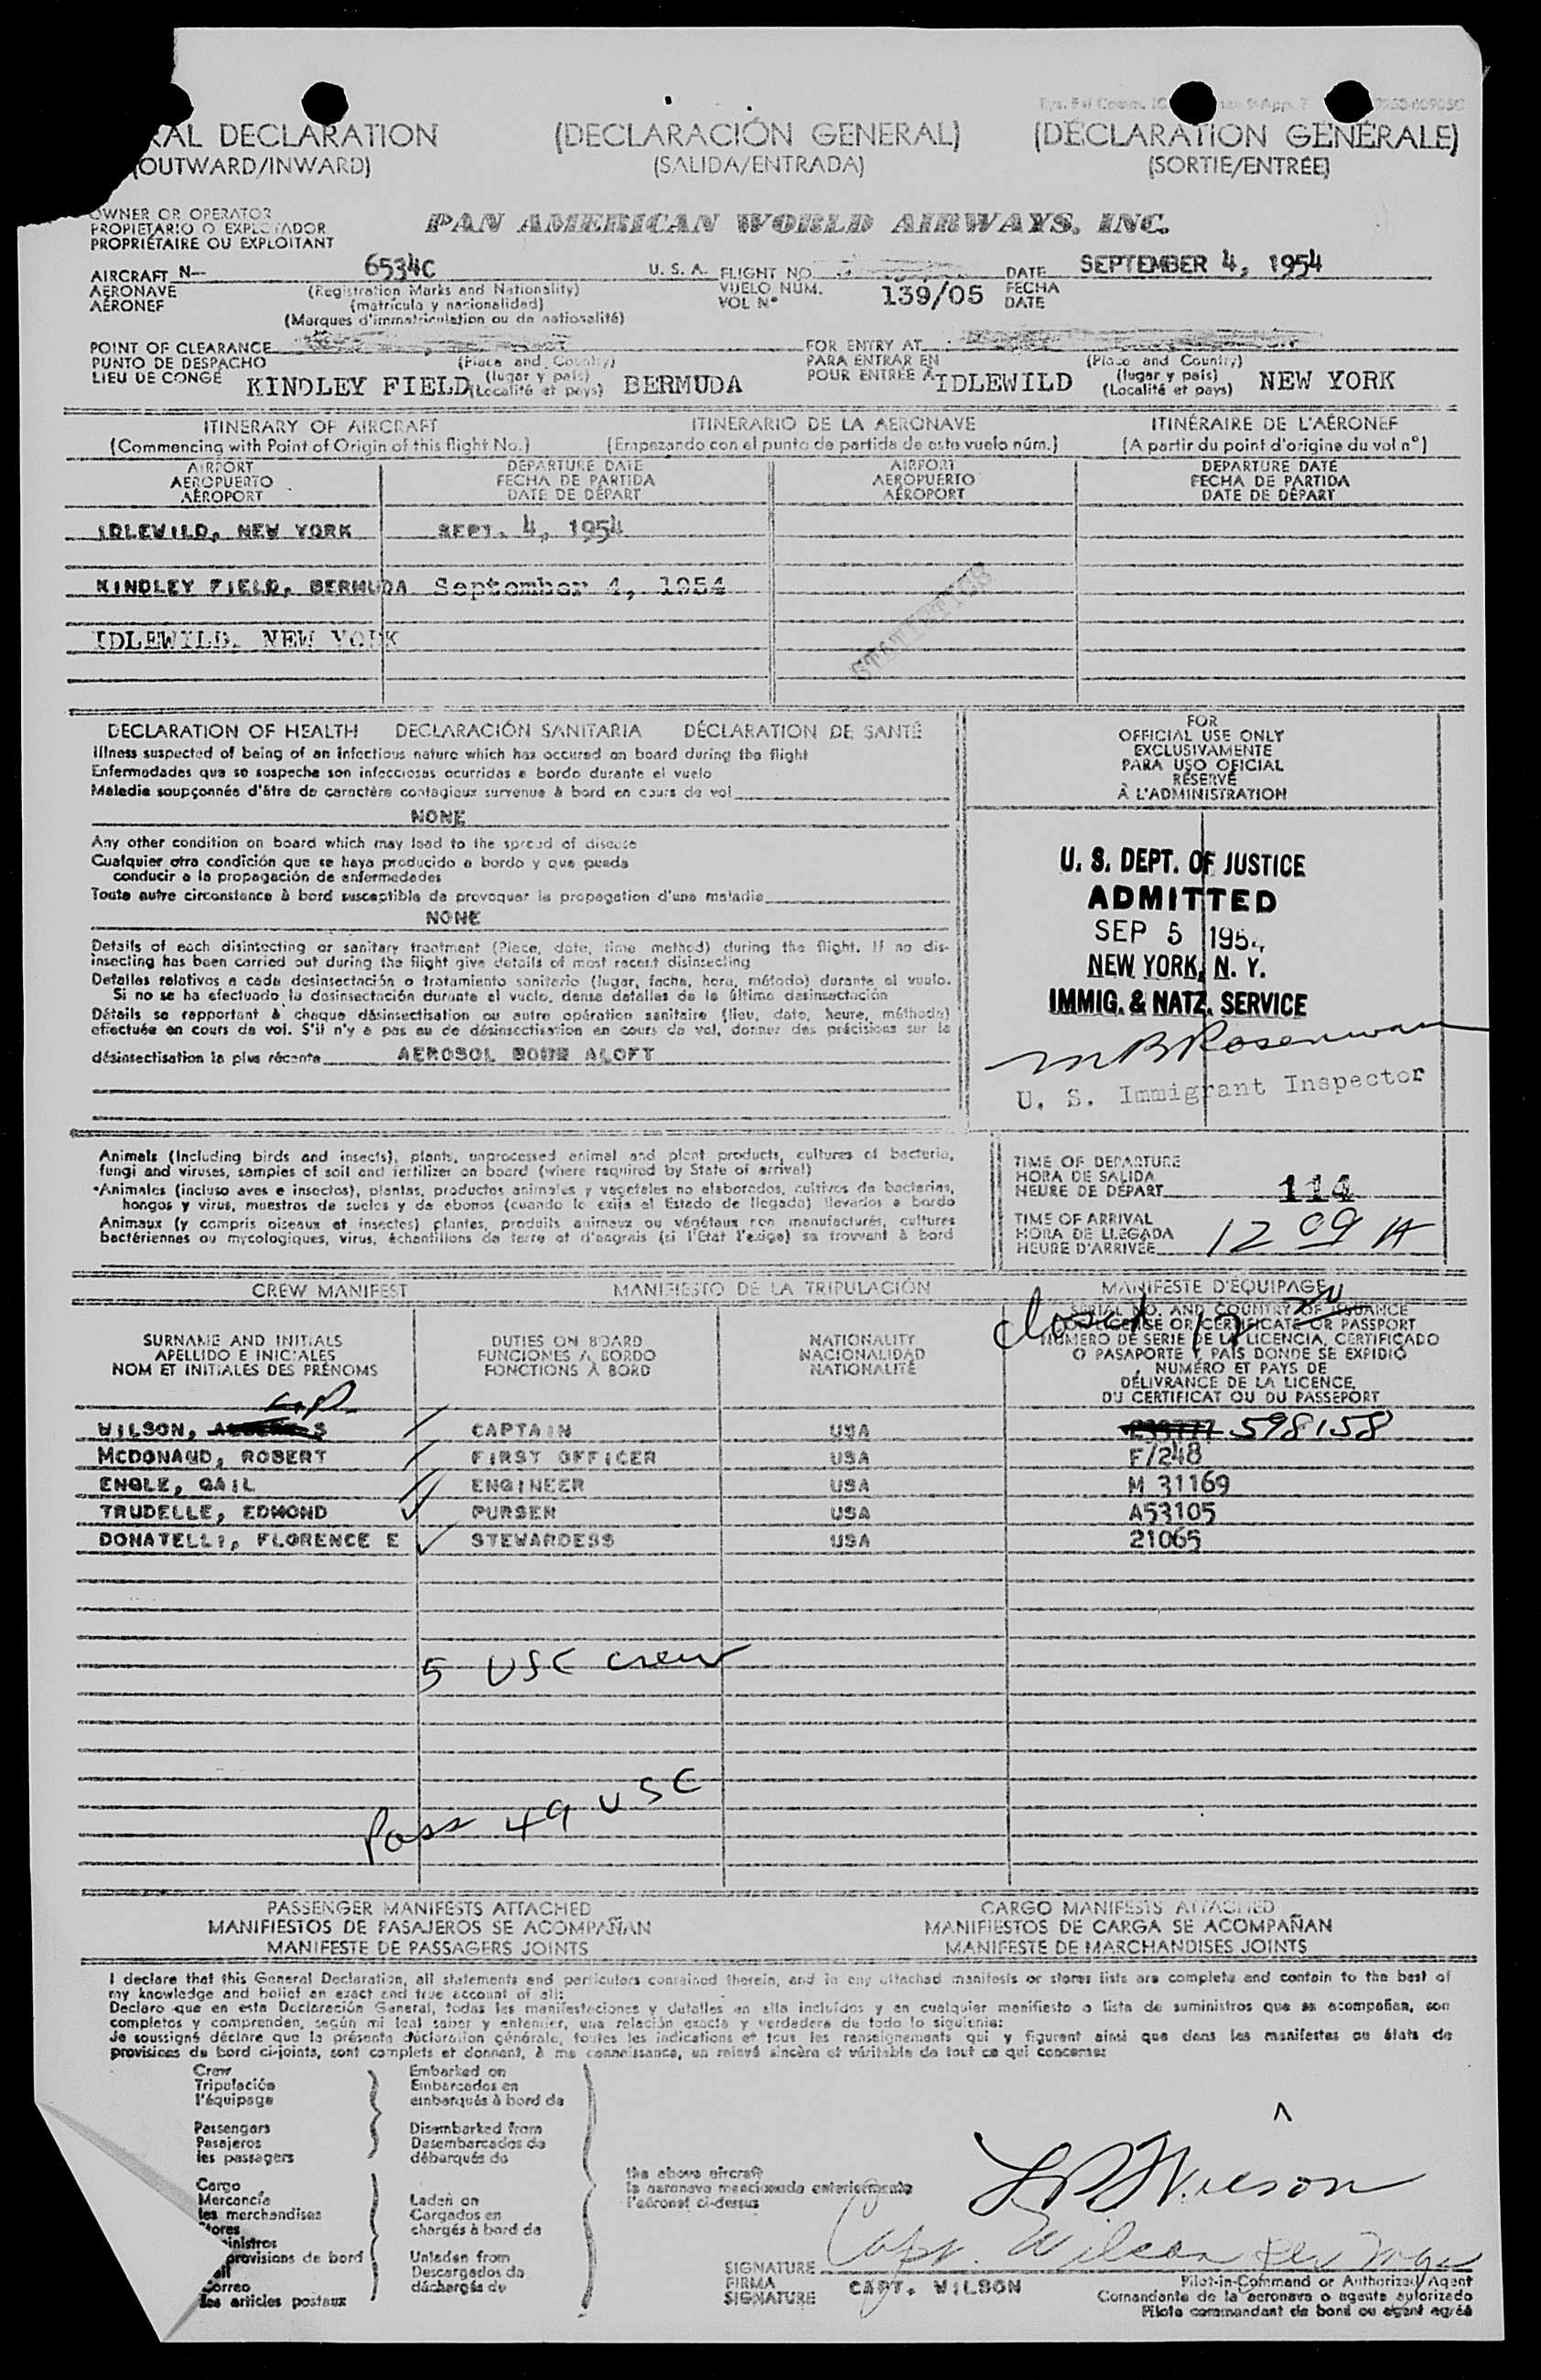 RAL DECLARATION (DECLARACIÓN GENERAL) (DÉCLARATION GÉNÉRALE)
(OUTWARD/INWARD) (SALIDA/ENTRADA) (SORTIE/ENTRÉE)
OWNER OR OPERATOR
PROPIETARIO O EXPLOTADOR
PROPRIÉTAIRE OU EXPLOITANT
PAN AMERICAN WORLD AIRWAYS, INC.
AIRCRAFT N— 6534C U. S. A. FLIGHT NO. DATE SEPTEMBER 4, 1954
AERONAVE (Registration Marks and Nationality) VUELO NÚM. 139/05 FECHA
AÉRONEF (matrícula y nacionalidad) VOL Nº DATE
(Marques d'immatriculation ou de nationalité)
POINT OF CLEARANCE FOR ENTRY AT
PUNTO DE DESPACHO (Place and Country) PARA ENTRAR EN (Place and Country)
LIEU DE CONGÉ KINDLEY FIELD (lugar y país) BERMUDA POUR ENTRÉE À IDLEWILD (lugar y país) NEW YORK
(Localité et pays) (Localité et pays)
ITINERARY OF AIRCRAFT ITINERARIO DE LA AERONAVE ITINÉRAIRE DE L'AÉRONEF
(Commencing with Point of Origin of this flight No.) (Empezando con el punto de partida de este vuelo núm.) (A partir du point d'origine du vol nº)
AIRPORT DEPARTURE DATE AIRPORT DEPARTURE DATE
AEROPUERTO FECHA DE PARTIDA AEROPUERTO FECHA DE PARTIDA
AÉROPORT DATE DE DÉPART AÉROPORT DATE DE DÉPART
IDLEWILD, NEW YORK SEPT. 4, 1954
KINDLEY FIELD, BERMUDA September 4, 1954
IDLEWILD, NEW YORK
STATISTICS
DECLARATION OF HEALTH DECLARACIÓN SANITARIA DÉCLARATION DE SANTÉ
Illness suspected of being of an infectious nature which has occured on board during the flight
Enfermedades que se sospeche son infecciosas ocurridas a bordo durante el vuelo
Maladie soupçonnée d'être de caractère contagieux survenue à bord en cours de vol
NONE
Any other condition on board which may lead to the spread of disease
Cualquier otra condición que se haya producido a bordo y que pueda
conducir a la propagación de enfermedades
Toute autre circonstance à bord susceptible de provoquer la propagation d'une maladie
NONE
Details of each disinsecting or sanitary treatment (Place, date, time method) during the flight. If no dis-
insecting has been carried out during the flight give details of most recent disinsecting
Detalles relativos a cada desinsectación o tratamiento sanitario (lugar, fecha, hora, método) durante el vuelo.
Si no se ha efectuado la desinsectación durante el vuelo, dense detalles de la última desinsectación
Détails se rapportant à chaque désinsectisation ou autre opération sanitaire (lieu, date, heure, méthode)
effectuée en cours de vol. S'il n'y a pas eu de désinsectisation en cours de vol, donner des précisions sur la
désinsectisation la plus récente AEROSOL BOMB ALOFT
FOR
OFFICIAL USE ONLY
EXCLUSIVAMENTE
PARA USO OFICIAL
RÉSERVÉ
À L'ADMINISTRATION
U. S. DEPT. OF JUSTICE
ADMITTED
SEP 5 1954
NEW YORK, N. Y.
IMMIG. & NATZ. SERVICE
U. S. Immigrant Inspector
Animals (Including birds and insects), plants, unprocessed animal and plant products, cultures of bacteria,
fungi and viruses, samples of soil and fertilizer on board (where required by State of arrival)
*Animales (incluso aves e insectos), plantas, productos animales y vegetales no elaborados, cultivos de bacterias,
hongos y virus, muestras de suelos y de abonos (cuando lo exija el Estado de llegada) llevados a bordo
Animaux (y compris oiseaux et insectes) plantes, produits animaux ou végétaux non manufacturés, cultures
bactériennes ou mycologiques, virus, échantillons de terre et d'engrais (si l'Etat l'exige) se trouvant à bord
TIME OF DEPARTURE
HORA DE SALIDA
HEURE DE DÉPART 114
TIME OF ARRIVAL
HORA DE LLEGADA
HEURE D'ARRIVÉE 12 09 A
CREW MANIFEST MANIFIESTO DE LA TRIPULACIÓN MANIFESTE D'ÉQUIPAGE
Closed 12
SERIAL NO. AND COUNTRY OF ISSUANCE
LICENSE OR CERTIFICATE OR PASSPORT
SURNAME AND INITIALS DUTIES ON BOARD NATIONALITY NÚMERO DE SERIE DE LA LICENCIA, CERTIFICADO
APELLIDO E INICIALES FUNCIONES A BORDO NACIONALIDAD O PASAPORTE Y PAÍS DONDE SE EXPIDIÓ
NOM ET INITIALES DES PRÉNOMS FONCTIONS À BORD NATIONALITÉ NUMÉRO ET PAYS DE
DÉLIVRANCE DE LA LICENCE,
DU CERTIFICAT OU DU PASSEPORT
WILSON, CAPTAIN USA 598158
MCDONAUD, ROBERT FIRST OFFICER USA F/248
ENGLE, GAIL ENGINEER USA M 31169
TRUDELLE, EDMOND PURSER USA A53105
DONATELLI, FLORENCE E STEWARDESS USA 21065
5 USC crew
Pass 49 USC
PASSENGER MANIFESTS ATTACHED CARGO MANIFESTS ATTACHED
MANIFIESTOS DE PASAJEROS SE ACOMPAÑAN MANIFIESTOS DE CARGA SE ACOMPAÑAN
MANIFESTE DE PASSAGERS JOINTS MANIFESTE DE MARCHANDISES JOINTS
I declare that this General Declaration, all statements and particulars contained therein, and in any attached manifests or stores lists are complete and contain to the best of
my knowledge and belief an exact and true account of all:
Declaro que en esta Declaración General, todas las manifestaciones y detalles en ella incluídos y en cualquier manifiesto o lista de suministros que se acompañan, son
completos y comprenden, según mi leal saber y entender, una relación exacta y verdadera de todo lo siguiente:
Je soussigné déclare que la présente déclaration générale, toutes les indications et tous les renseignements qui y figurent ainsi que dans les manifestes ou états de
provisions de bord ci-joints, sont complets et donnent, à ma connaissance, un relevé sincère et véritable de tout ce qui concerne:
Crew Embarked on
Tripulación Embarcados en
l'équipage embarqués à bord de
Passengers Disembarked from
Pasajeros Desembarcados de
les passagers débarqués de
the above aircraft
la aeronave mencionada anteriormente
l'aéronef ci-dessus
Cargo
Mercancía Laden on
les merchandises Cargados en
tores chargés à bord de
inistros
provisions de bord Unladen from
ail Descargados de
Correo déchargés de
les articles postaux
Wilson
Capt. Wilson
SIGNATURE
FIRMA CAPT. WILSON
SIGNATURE
Pilot-in-Command or Authorized Agent
Comandante de la aeronave o agente autorizado
Pilote commandant de bord ou agent agréé